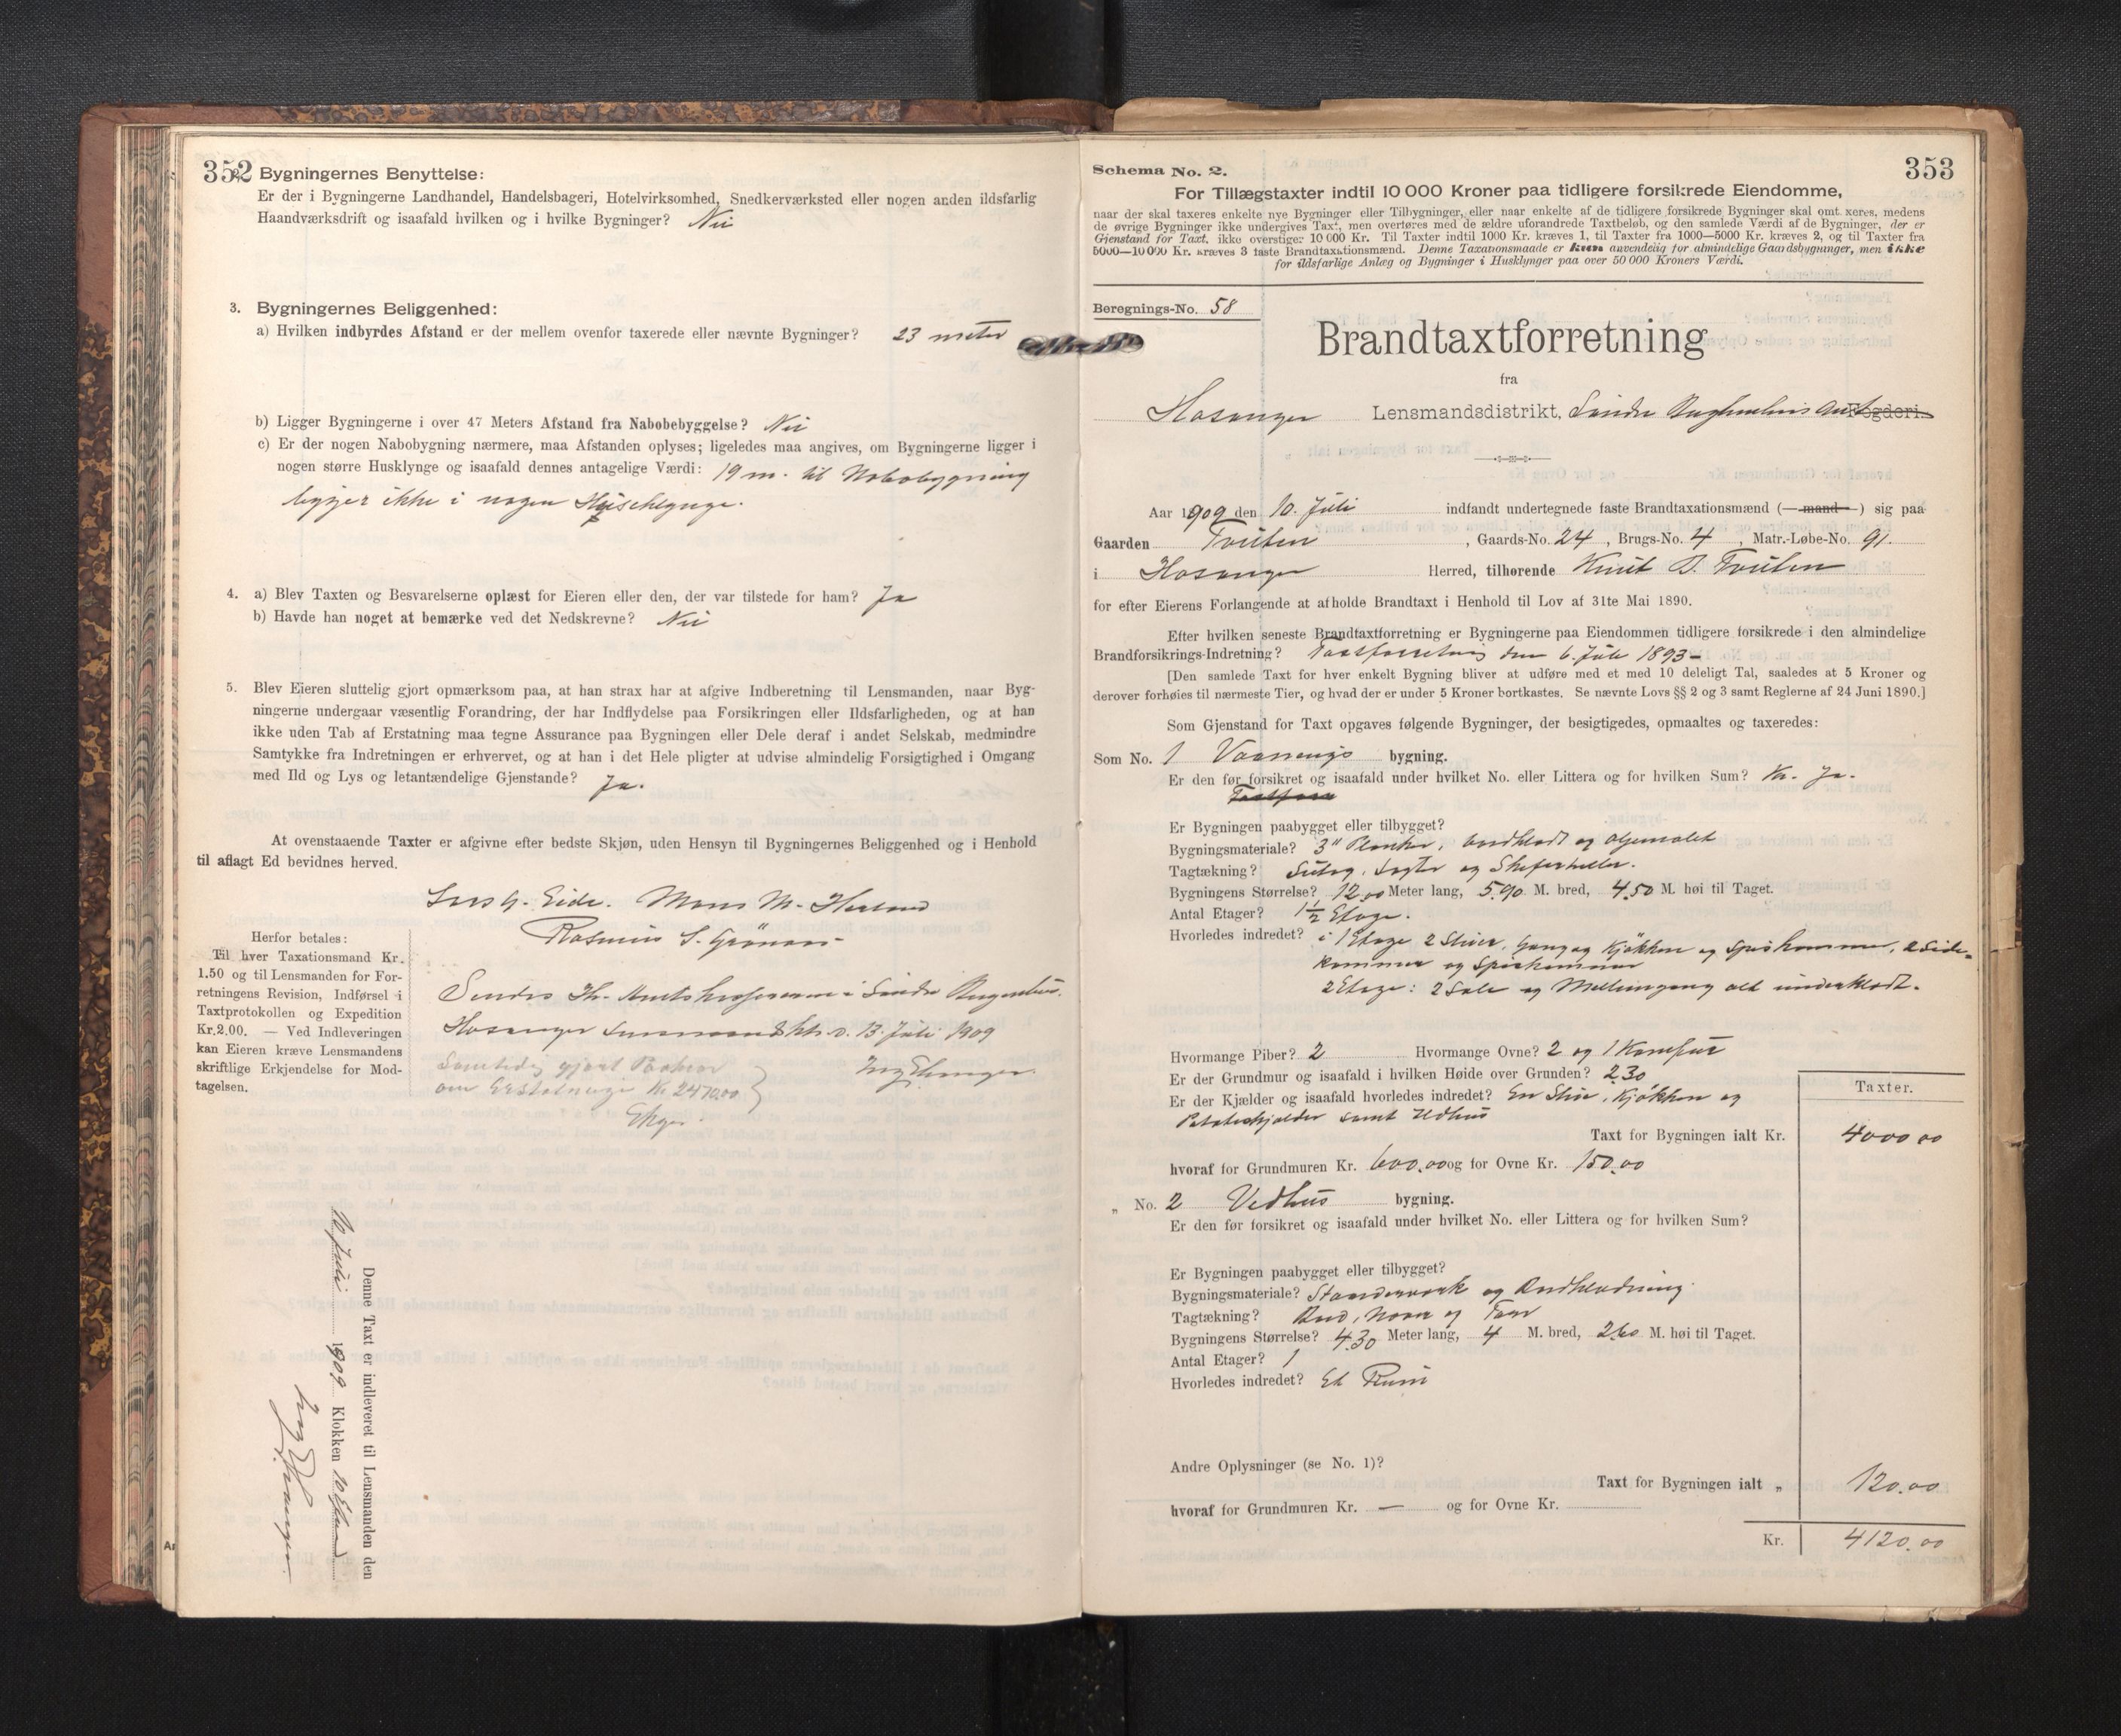 352
Bygningernes Benyttelse:
Er der i Bygningerne Landhandel, Handelsbageri, Hotelvirksomhed, Snedkerværksted eller nogen anden ildsfarlig
Haandværksdrift og isaafald hvilken og i hvilke Bygninger? Nei
3. Bygningernes Beliggenhed:
a) Hvilken indbyrdes Afstand er der mellem ovenfor taxerede eller nævnte Bygninger? 23 meter
b) Ligger Bygningerne i over 47 Meters Afstand fra Nabobebyggelse? Nei
c) Er der nogen Nabobygning nærmere, maa Afstanden oplyses; ligeledes maa angives, om Bygningerne ligger i
nogen større Husklynge og isaafald dennes antagelige Værdi: 19 m. til Nabobygning
ligger ikke i nogen Husklynge.
4. a) Blev Taxten og Besvarelserne oplæst for Eieren eller den, der var tilstede for ham? Ja
b) Havde han noget at bemærke ved det Nedskrevne? Nei
5. Blev Eieren sluttelig gjort opmærksom paa, at han strax har at afgive Indberetning til Lensmanden, naar Byg-
ningerne undergaar væsentlig Forandring, der har Indflydelse paa Forsikringen eller Ildsfarligheden, og at han
ikke uden Tab af Erstatning maa tegne Assurance paa Bygningen eller Dele deraf i andet Selskab, medmindre
Samtykke fra Indretningen er erhvervet, og at han i det Hele pligter at udvise almindelig Forsigtighed i Omgang
med Ild og Lys og letantændelige Gjenstande? Ja.
At ovenstaaende Taxter er afgivne efter bedste Skjøn, uden Hensyn til Bygningernes Beliggenhed og i Henhold
til aflagt Ed bevidnes herved.
Lars G. Eide. Mons M. Herland
Rasmus S.
Herfor betales:
Til hver Taxationsmand Kr.
1.50 og til Lensmanden for For-
retningens Revision, Indførsel i
Taxtprotokollen og Expedition
Kr.2.00. — Ved Indleveringen
kan Eieren kræve Lensmandens
skriftlige Erkjendelse for Mod-
tagelsen.
Sendes Hr. Amtskassereren i Søndre Bergenhus.
Hosanger 13. Juli 1909
gjort
om Kr 2470.00
Denne Taxt er indleveret til Lensmanden den
Juli 1909 Klokken 10
353
Schema No. 2.
For Tillægstaxter indtil 10 000 Kroner paa tidligere forsikrede Eiendomme,
naar der skal taxeres enkelte nye Bygninger eller Tilbygninger, eller naar enkelte af de tidligere forsikrede Bygninger skal omtaxeres, medens
de øvrige Bygninger ikke undergives Taxt, men overføres med de ældre uforandrede Taxtbeløb, og den samlede Værdi af de Bygninger, der er
Gjenstand for Taxt, ikke overstiger 10 000 Kr. Til Taxter indtil 1000 Kr. kræves 1, til Taxter fra 1000—5000 Kr. kræves 2, og til Taxter fra
5000—10 000 Kr. kræves 3 faste Brandtaxationsmænd. Denne Taxationsmaade er kun anvendelig for almindelige Gaardsbygninger, men ikke
for ildsfarlige Anlæg og Bygninger i Husklynger paa over 50 000 Kroners Værdi.
Beregnings-No. 58
Brandtaxtforretning
fra
Hosanger Lensmandsdistrikt, Søndre Bergenhus Amt Fogderi.
Aar 1909 den 10. Juli indfandt undertegnede faste Brandtaxationsmænd (—mand—) sig paa
Gaarden Tveiten, Gaards-No. 24, Brugs-No. 4, Matr.-Løbe-No. 91.
i Hosanger Herred, tilhørende Knut B. Tveiten
for efter Eierens Forlangende at afholde Brandtaxt i Henhold til Lov af 31te Mai 1890.
Efter hvilken seneste Brandtaxtforretning er Bygningerne paa Eiendommen tidligere forsikrede i den almindelige
Brandforsikrings-Indretning? Taxtforretning den 6. Juli 1893-
[Den samlede Taxt for hver enkelt Bygning bliver at udføre med et med 10 deleligt Tal, saaledes at 5 Kroner og
derover forhøies til nærmeste Tier, og hvad der er under 5 Kroner bortkastes. Se nævnte Lovs §§ 2 og 3 samt Reglerne af 24 Juni 1890.]
Som Gjenstand for Taxt opgaves følgende Bygninger, der besigtigedes, opmaaltes og taxeredes:
Som No. 1 Vaanings bygning.
Er den før forsikret og isaafald under hvilket No. eller Littera og for hvilken Sum? Kr. Ja.
Er Bygningen paabygget eller tilbygget?
Bygningsmateriale? 3" Planker, bordklædt og oljemalet
Tagtækning? Sutag, Lægter og Skiferheller.
Bygningens Størrelse? 12.00 Meter lang, 5.90 M. bred, 4.50 M. høi til Taget.
Antal Etager? 1½ Etage.
Hvorledes indredet? i 1 Etage 2 Stuer, Gang og Kjøkken og Spiskammer, 2 Side-
kammer og Spiskammer
2 Etage: 2 Sale og Mellemgang alt underklædt.
Hvormange Piber? 2 Hvormange Ovne? 2 og 1 Komfur
Er der Grundmur og isaafald i hvilken Høide over Grunden? 2.30
Er der Kjælder og isaafald hvorledes indredet? En Stue, Kjøkken og
Potetkjælder samt Vedhus
Taxter.
Taxt for Bygningen ialt Kr. 4000.00
hvoraf for Grundmuren Kr. 600.00 og for Ovne Kr. 150.00
„ No. 2 Vedhus bygning.
Er den før forsikret og isaafald under hvilket No. eller Littera og for hvilken Sum?
Er Bygningen paabygget eller tilbygget?
Bygningsmateriale? Standerværk og Bordklædning
Tagtækning? Bord, Næver og Torv
Bygningens Størrelse? 4.30 Meter lang, 4 M. bred, 2.60 M. høi til Taget.
Antal Etager? 1
Hvorledes indredet? Et Rum
Andre Oplysninger (se No. 1)?
Taxt for Bygningen ialt „ 120.00
hvoraf for Grundmuren Kr. — og for Ovne Kr.
Kr. 4120.00